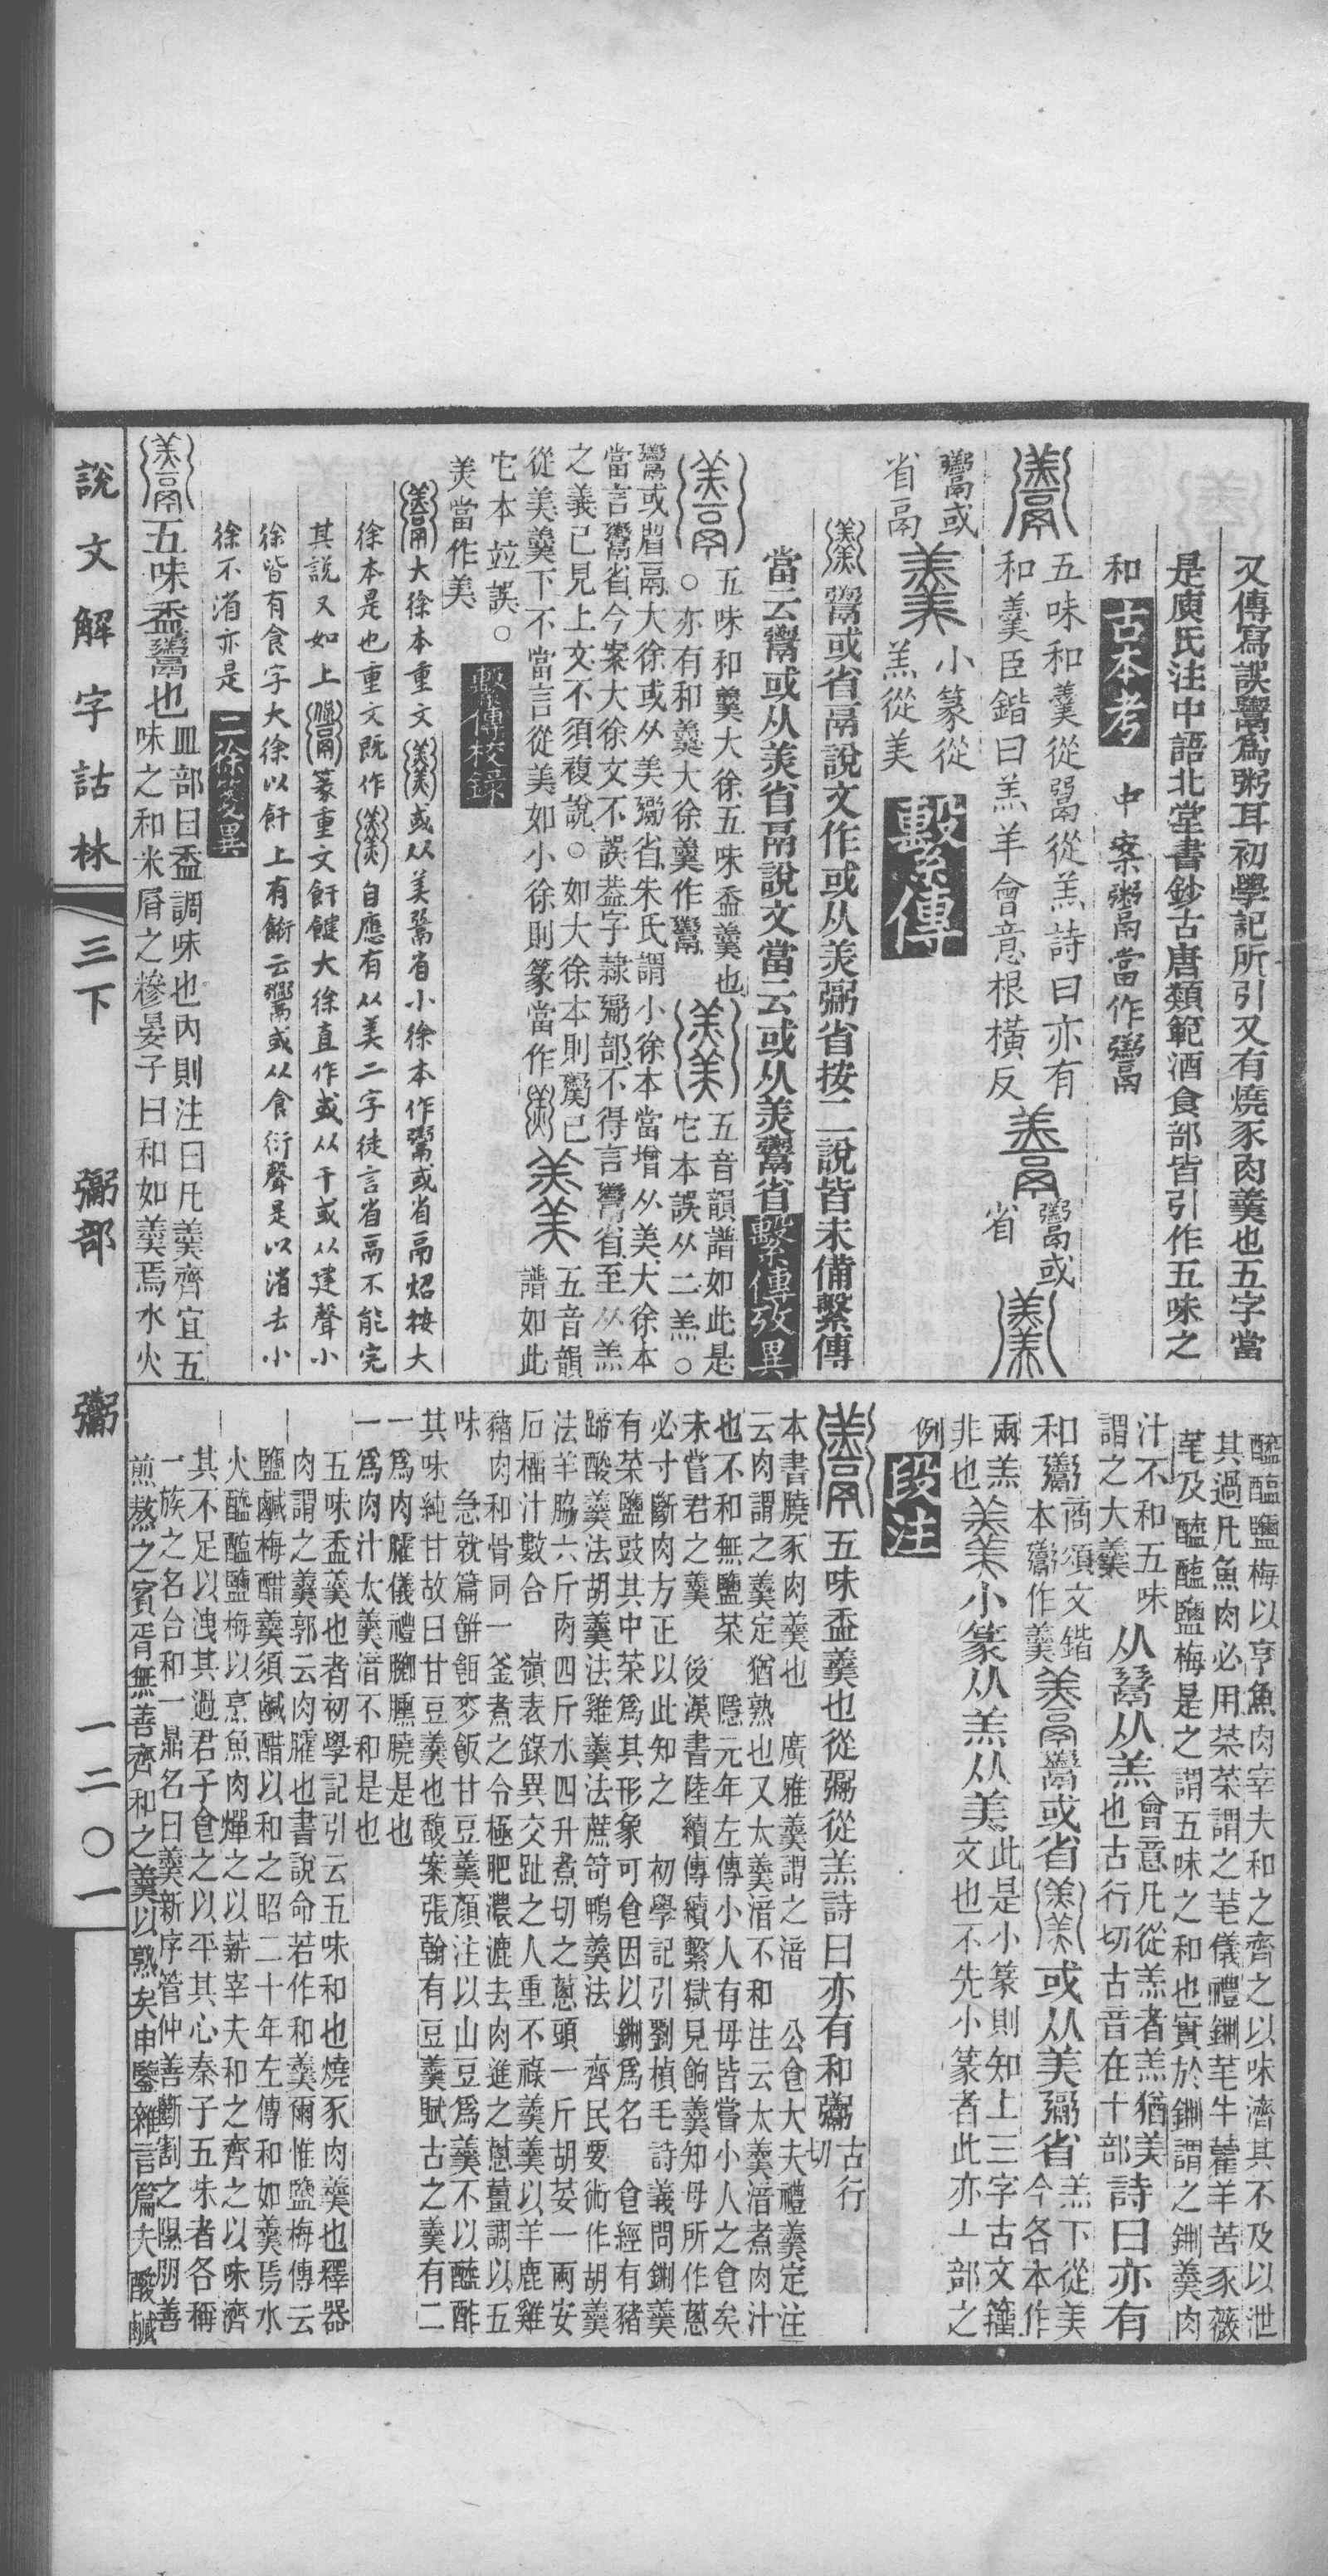 又傳寫誤鬻為粥耳初學記所引又有燒豕肉羹也五字當
是庾氏注中語北堂書鈔古唐類範酒食部皆引作五味之
和
古本考
中案粥鬲當作鬻
五味和羹從䰜從羔詩曰亦有
和羹臣鍇曰羔羊會意根橫反
或
省
或
省鬲
小篆從
羔從美
繫傳
或省鬲說文作或从羙䰜省按二說皆未備繫傳
當云或从羙省鬲說文當云或从羙省
繫傳攷異
五味和羹大徐五味盉羹也
○亦有和羹大徐羹作
五音韻譜如此是
它本誤从二羔○
或省鬲大徐或从美䰜省朱氏謂小徐本當增从美大徐本
當言省今案大徐文不誤葢字隸䰜部不得言省至从羔
之義已見上文不須複說○如大徐本則已
從美羹下不當言從美如小徐則篆當作
五音韻
譜如此
它本竝誤○
美當作美
繫傳校錄
大徐本重文或从美省小徐本作或省鬲炤按大
徐本是也重文既作自應有从美二字徒言省鬲不能完
其說又如上篆重文飦健大徐直作或从干或从建聲小
徐皆有食字大徐以飦上有䬧云或从食衍聲是以消去小
徐不消亦是
二徐箋異
五味盉也
皿部曰盉調味也內則注曰凡羹齊宜五
味之和米屑之糝晏子曰和如羹焉水火
醯醢鹽梅以亨魚肉宰夫和之齊之以味濟其不及以泄
其過凡魚肉必用菜菜謂之芼儀禮鉶芼牛藿羊苦豕薇
芼及醯醢鹽梅是之謂五味之和也實於鉶謂之鉶羹肉
汁不和五味
謂之大羹
从从羔
會意凡從羔者羔猶美
也古行切古音在十部
詩曰亦有
和
商頌文鍇
本作羹
或省
或从美䰜省
羔下從美
今各本作
兩羔
非也
小篆从羔从美
此是小篆則知上三字古文籒
文也不先小篆者此亦丄部之
例
段注
五味盉羹也從䰜從羔詩曰亦有和
古行
切
本書膮豕肉羹也　廣雅羹謂之湆　公食大夫禮羹定注
云肉謂之羹定猶熟也又太羹湆不和注云太羹湆煮肉汁
也不和無鹽菜　隱元年左傳小人有母皆嘗小人之食矣
未嘗君之羹　後漢書陸續傳續繫獄見餉羹知母所作蔥
必寸斷肉方正以此知之　初學記引劉楨毛詩義問鉶羹
有菜鹽豉其中菜為其形象可食因以鉶為名　食經有豬
蹄酸羹法胡羹法雞羹法蔗笴鴨羹法　齊民要術作胡羹
法羊脇六斤肉四斤水四升煮切之蔥頭一斤胡荽一兩安
石榴汁數合　嶺表錄異交趾之人重不祿羹羹以羊鹿雞
豬肉和骨同一釜煮之令極肥濃漉去肉進之蔥薑調以五
味　急就篇餅餌麥飯甘豆羹顏注以山豆為羹不以醯酢
其味純甘故曰甘豆羹也馥案張翰有豆羹賦古之羹有二
一為肉臛儀禮膷臐膮是也
一為肉汁太羹湆不和是也
五味盉羹也者初學記引云五味和也燒豕肉羹也釋器
肉謂之羹郭云肉臛也書說命若作和羹爾惟鹽梅傳云
鹽鹹梅醋羹須鹹醋以和之昭二十年左傳和如羹焉水
火醯醢鹽梅以烹魚肉燀之以薪宰夫和之齊之以味濟
其不足以洩其過君子食之以平其心秦子五朱者各稱
一族之名合和一鼎名曰羹新序管仲善斷割之隰朋善
煎熬之賓胥無善齊和之羹以熟矣申鑒雜言篇夫酸鹹
說文解字詁林
三下
䰜部
一二〇一